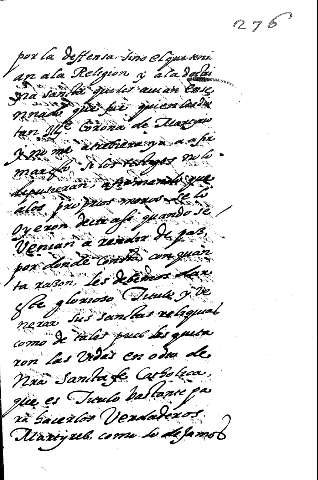 276
por la deffensa sino el que teni
an a la Religion y a la doctri
na santa que les auian ense
ñado, y que
tan Ille Corona de Martyrio
y no me atreviera yo a afir
marlo, si los testigos no lo
depusieran, afirmando que
a los proprios moros se lo
oyeron decir assi quando se
Venian a rendir de paz,
por donde consta con quan
ta razon les debemos dar
este glorioso Titulo y Ve
nerar sus santas reliquias
como de tales pues les quita
ron las Vidas en odio de
Nra Sancta fe Catholica
que es Titulo bastante pa
ra hacerlos Verdaderos
Martyres. como lo dejamos